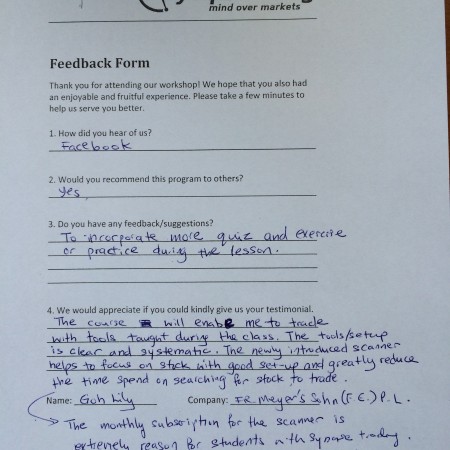 mind over markets
Feedback Form
Thank you for attending our workshop! We hope that you also had
an enjoyable and fruitful experience. Please take a few minutes to
help us serve you better.
1. How did you hear of us?
Facebook
2. Would you recommend this program to others?
Yes
3. Do you have any feedback/suggestions?
To incorporate more quiz and exercise
or practice during the lesson.
4. We would appreciate if you could kindly give us your testimonial.
The course will enable me to trade
with tools taught during the class. The tools/setup
is clear and systematic. The newly introduced scanner
helps to focus on stock with good set-up and greatly reduce
the time spend on searching for stock to trade.
Name: Goh Lily Company: Meyer's P.L.
The monthly subscription for the scanner is
extremely reason for students with trading.